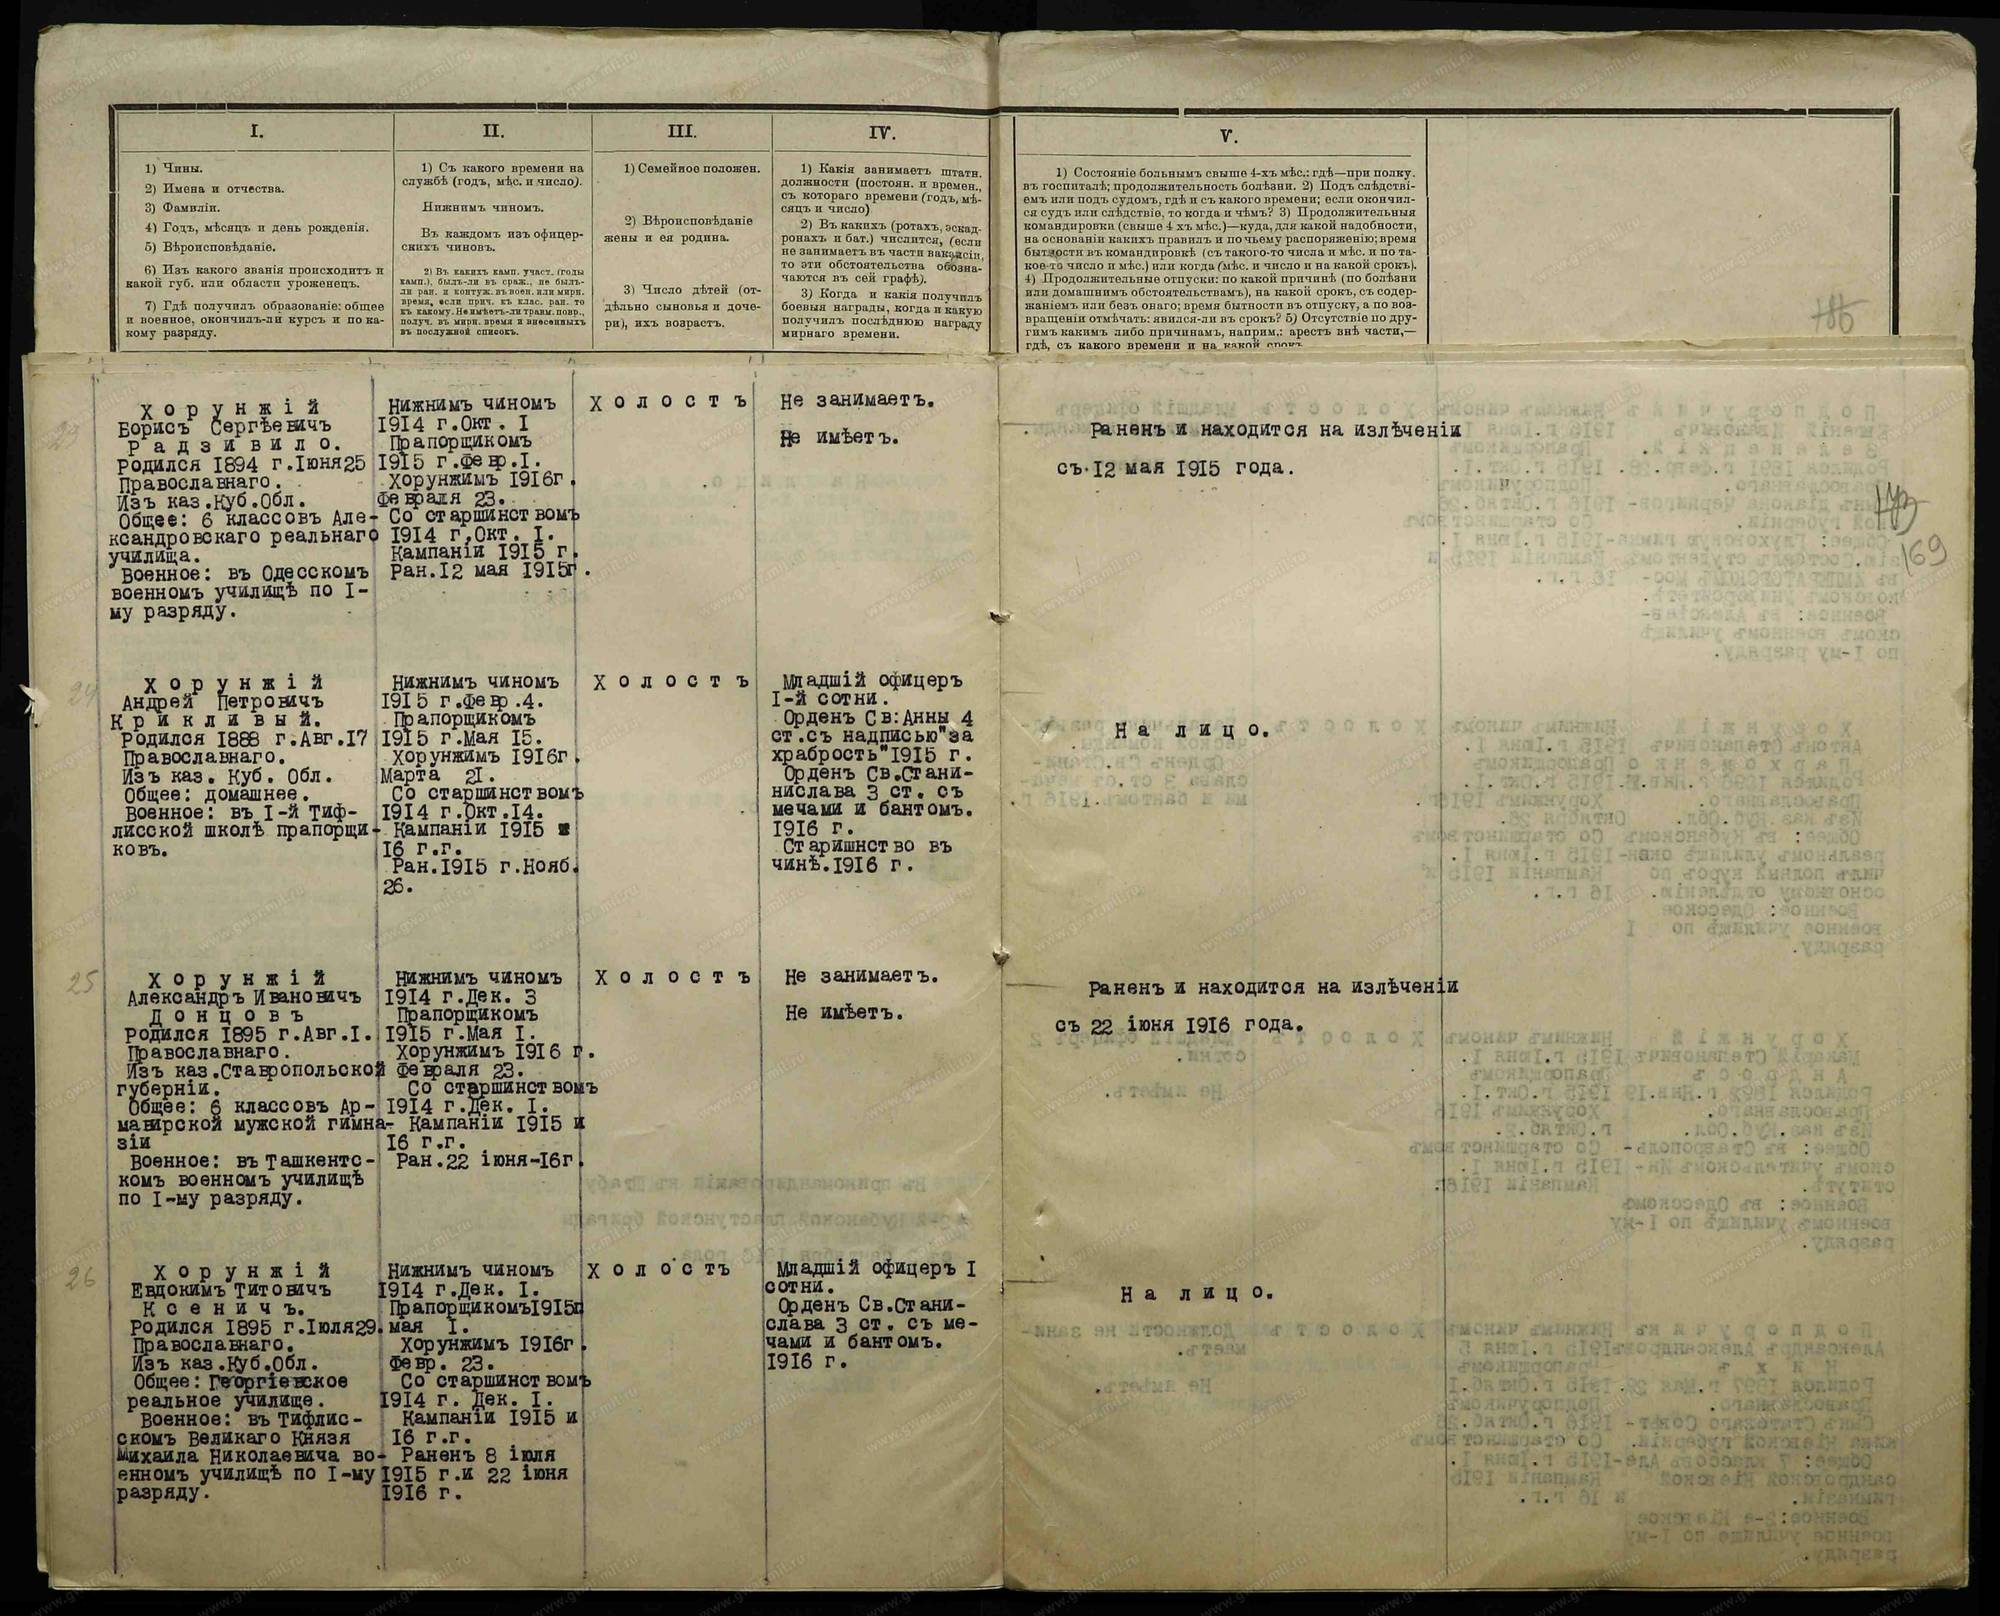 I.
1) Чины.
2) Имена и отчества.
3) Фамиліи.
4) Годъ, мѣсяцъ и день рожденія.
5) Вѣроисповѣданіе.
6) Изъ какого званія происходитъ и
какой губ. или области уроженецъ.
7) Гдѣ получилъ образованіе: общее
и военное, окончилъ-ли курсъ и по ка-
кому разряду.
II.
1) Съ какого времени на
службѣ (годъ, мѣс. и число).
Нижнимъ чиномъ.
Въ каждомъ изъ офицер-
скихъ чиновъ.
2) Въ какихъ камп. участ. (годы
камп.), былъ-ли въ сраж., не былъ-
ли ран. и контуж. въ воен. или мирн.
время, если прич. къ клас. ран. то
къ какому. Не имѣетъ-ли травм. повр.,
получ. въ мирн. время и внесенныхъ
въ послужной списокъ.
III.
1) Семейное положен.
2) Вѣроисповѣданіе
жены и ея родина.
3) Число дѣтей (от-
дѣльно сыновья и доче-
ри), ихъ возрастъ.
IV.
1) Какія занимаетъ штатн.
должности (постоян. и времен.,
съ котораго времени (годъ, мѣ-
сяцъ и число)
2) Въ какихъ (ротахъ, эскад-
ронахъ и бат.) числится, (если
не занимаетъ въ части вакансіи,
то эти обстоятельства обозна-
чаются въ сей графѣ).
3) Когда и какія получилъ
боевыя награды, когда и какую
получилъ послѣднюю награду
мирнаго времени.
V.
1) Состояніе больнымъ свыше 4-хъ мѣс.: гдѣ—при полку.
въ госпиталѣ; продолжительность болѣзни. 2) Подъ слѣдстві-
емъ или подъ судомъ, гдѣ и съ какого времени; если окончил-
ся судъ или слѣдствіе, то когда и чѣмъ? 3) Продолжительныя
командировки (свыше 4 хъ мѣс.)—куда, для какой надобности,
на основаніи какихъ правилъ и по чьему распоряженію; время
бытности въ командировкѣ (съ такого-то числа и мѣс. и по та-
кое-то число и мѣс.) или когда (мѣс. и число и на какой срокъ).
4) Продолжительные отпуски: по какой причинѣ (по болѣзни
или домашнимъ обстоятельствамъ), на какой срокъ, съ содер-
жаніемъ или безъ онаго; время бытности въ отпуску, а по воз-
вращеніи отмѣчать: явился-ли въ срокъ? 5) Отсутствіе по дру-
гимъ какимъ либо причинамъ, наприм,: арестъ внѣ части,—
гдѣ, съ какого времени и на какой срокъ
186
173
169
23
Хорунжій
Борисъ Сергѣевичъ
Радзивило.
Родился 1894 г.Іюня25
Православнаго.
Изъ каз.Куб.Обл.
Общее: 6 классовъ Але-
ксандровскаго реальнаго
училища.
Военное: въ Одесскомъ
военномъ училищѣ по I-
му разряду.
Нижнимъ чиномъ
1914 г.Окт. I
Прапорщикомъ
1915 г.Февр.I.
Хорунжимъ 1916г.
Февраля 23.
Со старшинствомъ
1914 г.Окт. I.
Кампаніи 1915 г.
Ран.12 мая 1915г.
Холостъ
Не занимаетъ.
Не имѣетъ.
Раненъ и находится на излѣченіи
съ 12 мая 1915 года.
24
Хорунжій
Андрей Петровичъ
Крикливый.
Родился 1888 г.Авг.17
Православнаго.
Изъ каз. Куб. Обл.
Общее: домашнее.
Военное: въ I-й Тиф-
лисской школѣ прапорщи-
ковъ.
Нижнимъ чиномъ
1915 г.Февр.4.
Прапорщикомъ
1915 г.Мая 15.
Хорунжимъ 1916г.
Марта 21.
Со старшинствомъ
1914 г.Окт.14.
Кампаніи 1915 и
16 г.г.
Ран.1915 г.Нояб.
26.
Холостъ
Младшій офицеръ
I-й сотни.
Орденъ Св:Анны 4
ст.съ надписью"за
храбрость"1915 г.
Орденъ Св.Стани-
нислава 3 ст. съ
мечами и бантомъ.
1916 г.
Старишнство въ
чинѣ.1916 г.
На лицо.
25
Хорунжій
Александръ Ивановичъ
Донцовъ
Родился 1895 г.Авг.I.
Православнаго.
Изъ каз.Ставропольской
губерніи.
Общее: 6 классовъ Ар-
мавирской мужской гимна-
зіи
Военное: въ Ташкентс-
комъ военномъ училищѣ
по I-му разряду.
Нижнимъ чиномъ
1914 г.Дек. 3
Прапорщикомъ
1915 г.Мая I.
Хорунжимъ 1916 г.
Февраля 23.
Со старшинствомъ
1914 г.Дек. I.
Кампаніи 1915 и
16 г.г.
Ран.22 іюня-16г.
Холостъ
Не занимаетъ.
Не имѣетъ.
Раненъ и находится на излѣченіи
съ 22 іюня 1916 года.
26
Хорунжій
Евдокимъ Титовичъ
Ксеничъ.
Родился 1895 г.Іюля29.
Православнаго.
Изъ каз.Куб.Обл.
Общее: Георгіевское
реальное училище.
Военное: въ Тифлис-
скомъ Великаго Князя
Михаила Николаевича во-
енномъ училищѣ по I-му
разряду.
Нижнимъ чиномъ
1914 г.Дек. I.
Прапорщикомъ1915г
мая I.
Хорунжимъ 1916г.
Февр. 23.
Со старшинствомъ
1914 г. Дек. I.
Кампаніи 1915 и
16 г.г.
Раненъ 8 іюля
1915 г.и 22 іюня
1916 г.
Холостъ
Младшій офицеръ I
сотни.
Орденъ Св.Стани-
слава 3 ст. съ ме-
чами и бантомъ.
1916 г.
На лицо.